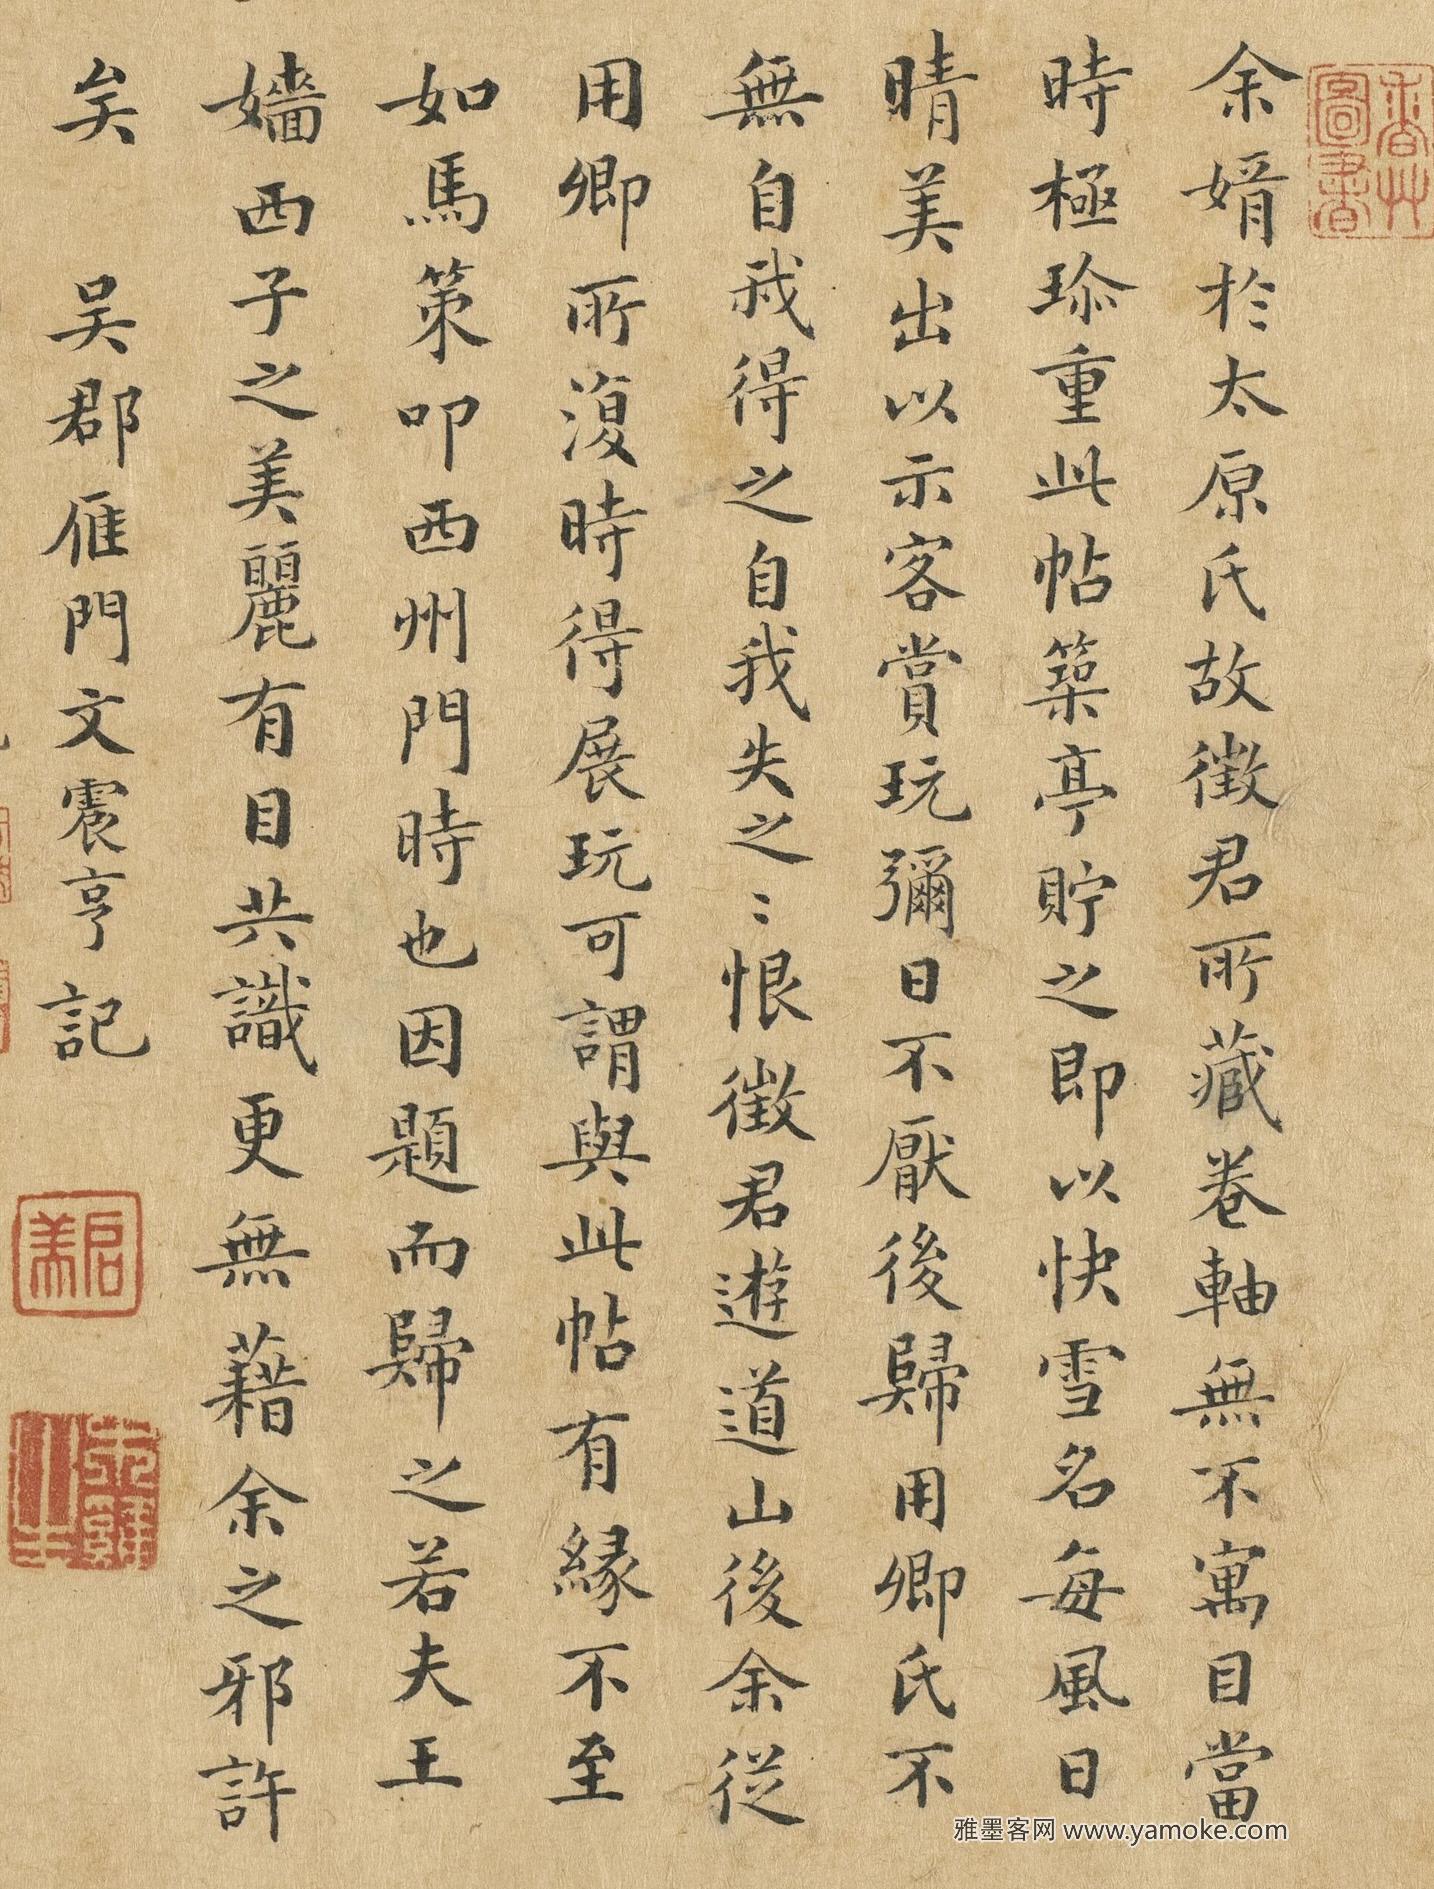 香草圖書
余婿於太原氏故徵君所藏卷軸無不寓目當
時極珍重此帖築亭貯之即以快雪名每風日
晴美出以示客賞玩彌日不厭後歸用卿氏不
無自我得之自我失之〻恨徵君遊道山後余從
用卿所復時得展玩可謂與此帖有緣不至
如馬策叩西州門時也因題而歸之若夫王
嬙西子之美麗有目共識更無藉余之邪許
矣 吳郡雁門文震亨記
啟美
雅墨客网 www.yamoke.com